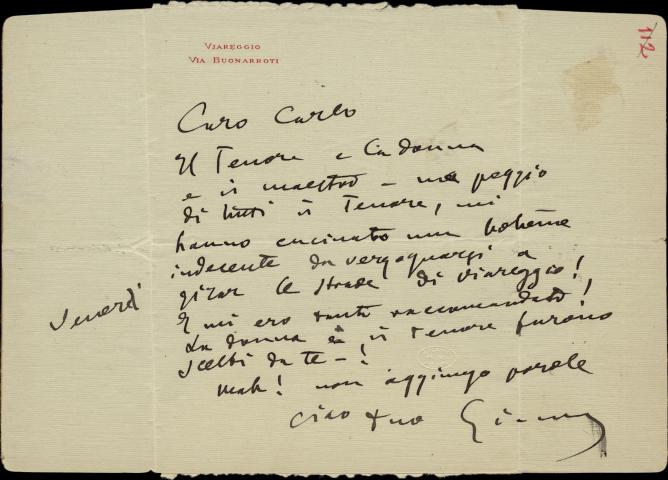 VIAREGGIO
VIA BUONARROTI
112
Caro Carlo
Il Tenore e la donna
e il maestro – ma peggio
di tutti il Tenore, mi
hanno cucinato una bohème
indecente da vergognarsi a
girar le strade di Viareggio!
E mi ero tanto raccomandato!
La donna e il Tenore furono
scelti da te – !
Mah! non aggiungo parole
ciao tuo
Venerdì